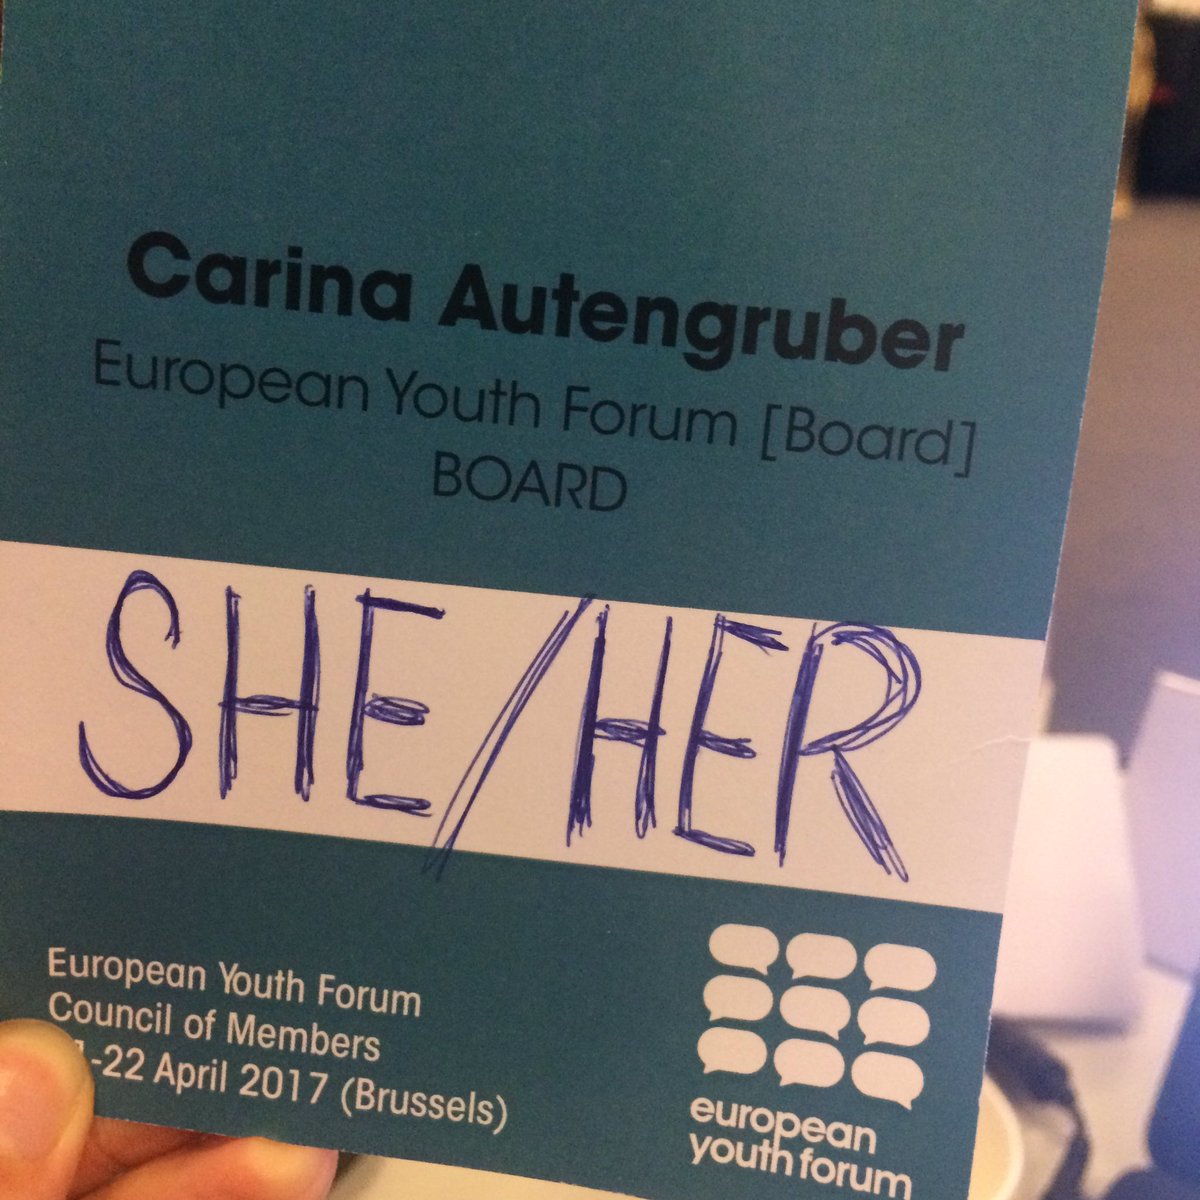 Carina Autengruber
European Youth Forum [Board]
BOARD
SHE/HER
European Youth Forum
Council of Members
-22 April 2017 (Brussels)
european
youth forum